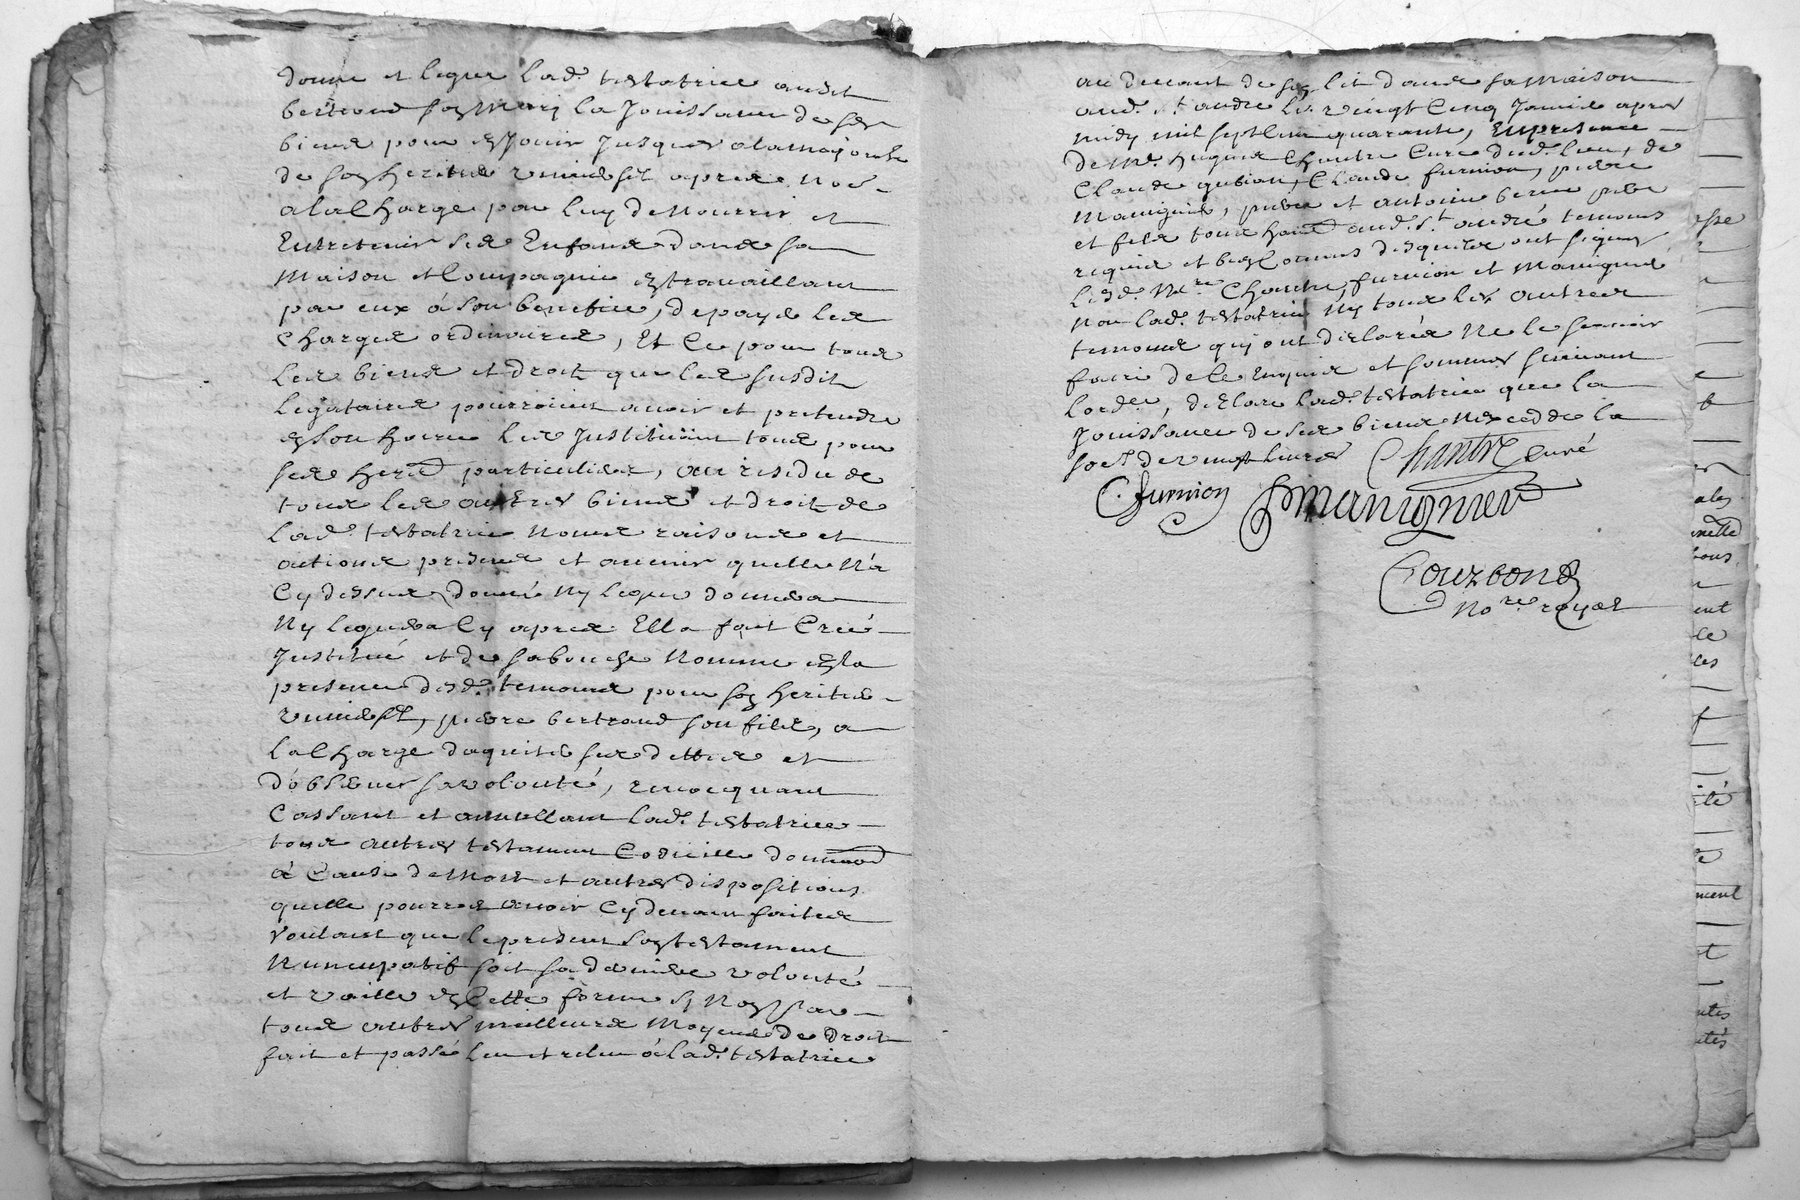 donne et legue lad. testatrice audit
bertrand son Mary la Jouissance de ses
biens pour en Jouir Jusques a la majorité
de son heritier universel apres nommé
a la Charge par luy de Nourrir et
Entretenir ses Enfans dans sa
Maison et Compagnie en travaillant
par eux á son benefice, de payer les
Charges ordinaires, Et Ce pour tous
les biens et droits que les susdits
legataires pourroient avoir et pretendre
en son hoirie les Instituant tous pour
ses herit. particuliers, au residu de
tous les autres biens et droits de
lad. testatrice Noms raisons et
actions presens et avenir quelle Na
Cy dessus donné Ny legué donnera
Ny leguera Cy apres Ella fait Creé
Institué et de sa bouche Nomme en la
presence desd. temoins pour son heritier
universel, pierre bertrand son fils, a
la Charge daquiter ses dettes et
d'observer sa volonté, revocquant
Cassant et annullant lad. testatrice
tous autres testamens Codicille donnaon
à Cause de Mort et autres dispositions
quelle pourroit avoir Cy devant faites
Voulant que le present son testament
Nuncupatif soit sa derniere volonté
et vaille en Cette forme sy Non par
tous autres meilleurs Moyens de droit
fait et passé leu et releu á lad. testatrice
au devant de son lit dans sa Maison
aud. St andre le vingt Cinq Janvier apres
midy mil sept Cent quarante, En presence
de Mre hugues Chantre Curé dud. lieu, de
Claude Furnion, pierre
Manignier, pierre et antoine pere
et fils tous hans aud. St andré temoins
requis et desquels ont signez
lesd. Mre Chantre, furnion et Manignier
Non lad. testatrice Ny tous les autres
temoins quy ont déclarés Ne le scavoir
faire de Ce Enquis et sommez suivant
lord.ce, declare lad. testatrice que la
Jouissance de ses biens Nexcedde la
soe. de vingt livres Chantre curé
C. furnion P manignier
Courbon
No.re royal